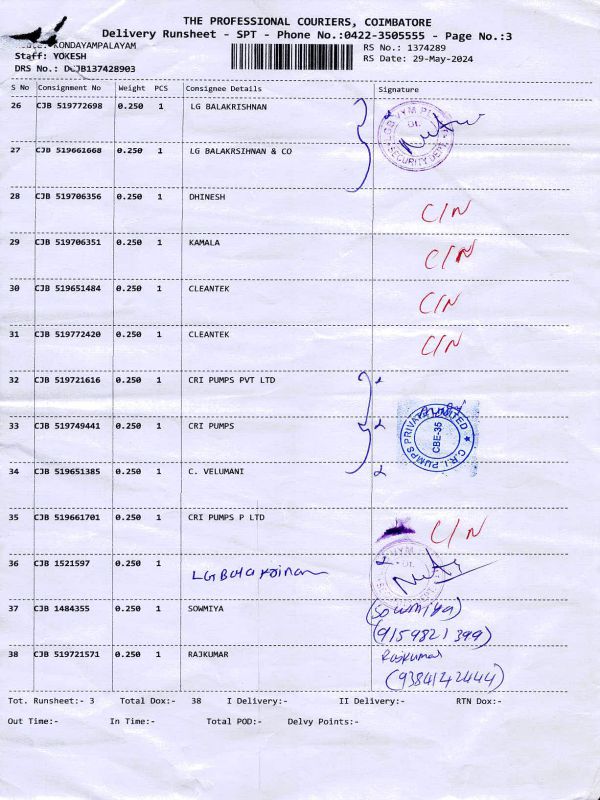 THE PROFESSIONAL COURIERS, COIMBATORE
Delivery Runsheet - SPT - Phone No.:0422-3505555 - Page No.:3
KONDAYAMPALAYAM RS No.: 1374289
Staff: YOKESH RS Date: 29-May-2024
DRS No.: DCJB137428903
S No Consignment No Weight PCS Consignee Details Signature
26 CJB 519772698 0.250 1 LG BALAKRISHNAN
SECURITY DEPT.
27 CJB 519661668 0.250 1 LG BALAKRSIHNAN & CO
28 CJB 519706356 0.250 1 DHINESH C/N
29 CJB 519706351 0.250 1 KAMALA C/N
30 CJB 519651484 0.250 1 CLEANTEK C/N
31 CJB 519772420 0.250 1 CLEANTEK C/N
32 CJB 519721616 0.250 1 CRI PUMPS PVT LTD
33 CJB 519749441 0.250 1 CRI PUMPS
C.R.I. PUMPS PRIVATE LIMITED
CBE-35
34 CJB 519651385 0.250 1 C. VELUMANI
35 CJB 519661701 0.250 1 CRI PUMPS P LTD C/N
36 CJB 1521597 0.250 1
37 CJB 1484355 0.250 1 SOWMIYA (Sowmiya)
(9159821399)
38 CJB 519721571 0.250 1 RAJKUMAR Rajkumar
(9384142444)
Tot. Runsheet:- 3 Total Dox:- 38 I Delivery:- II Delivery:- RTN Dox:-
Out Time:- In Time:- Total POD:- Delvy Points:-